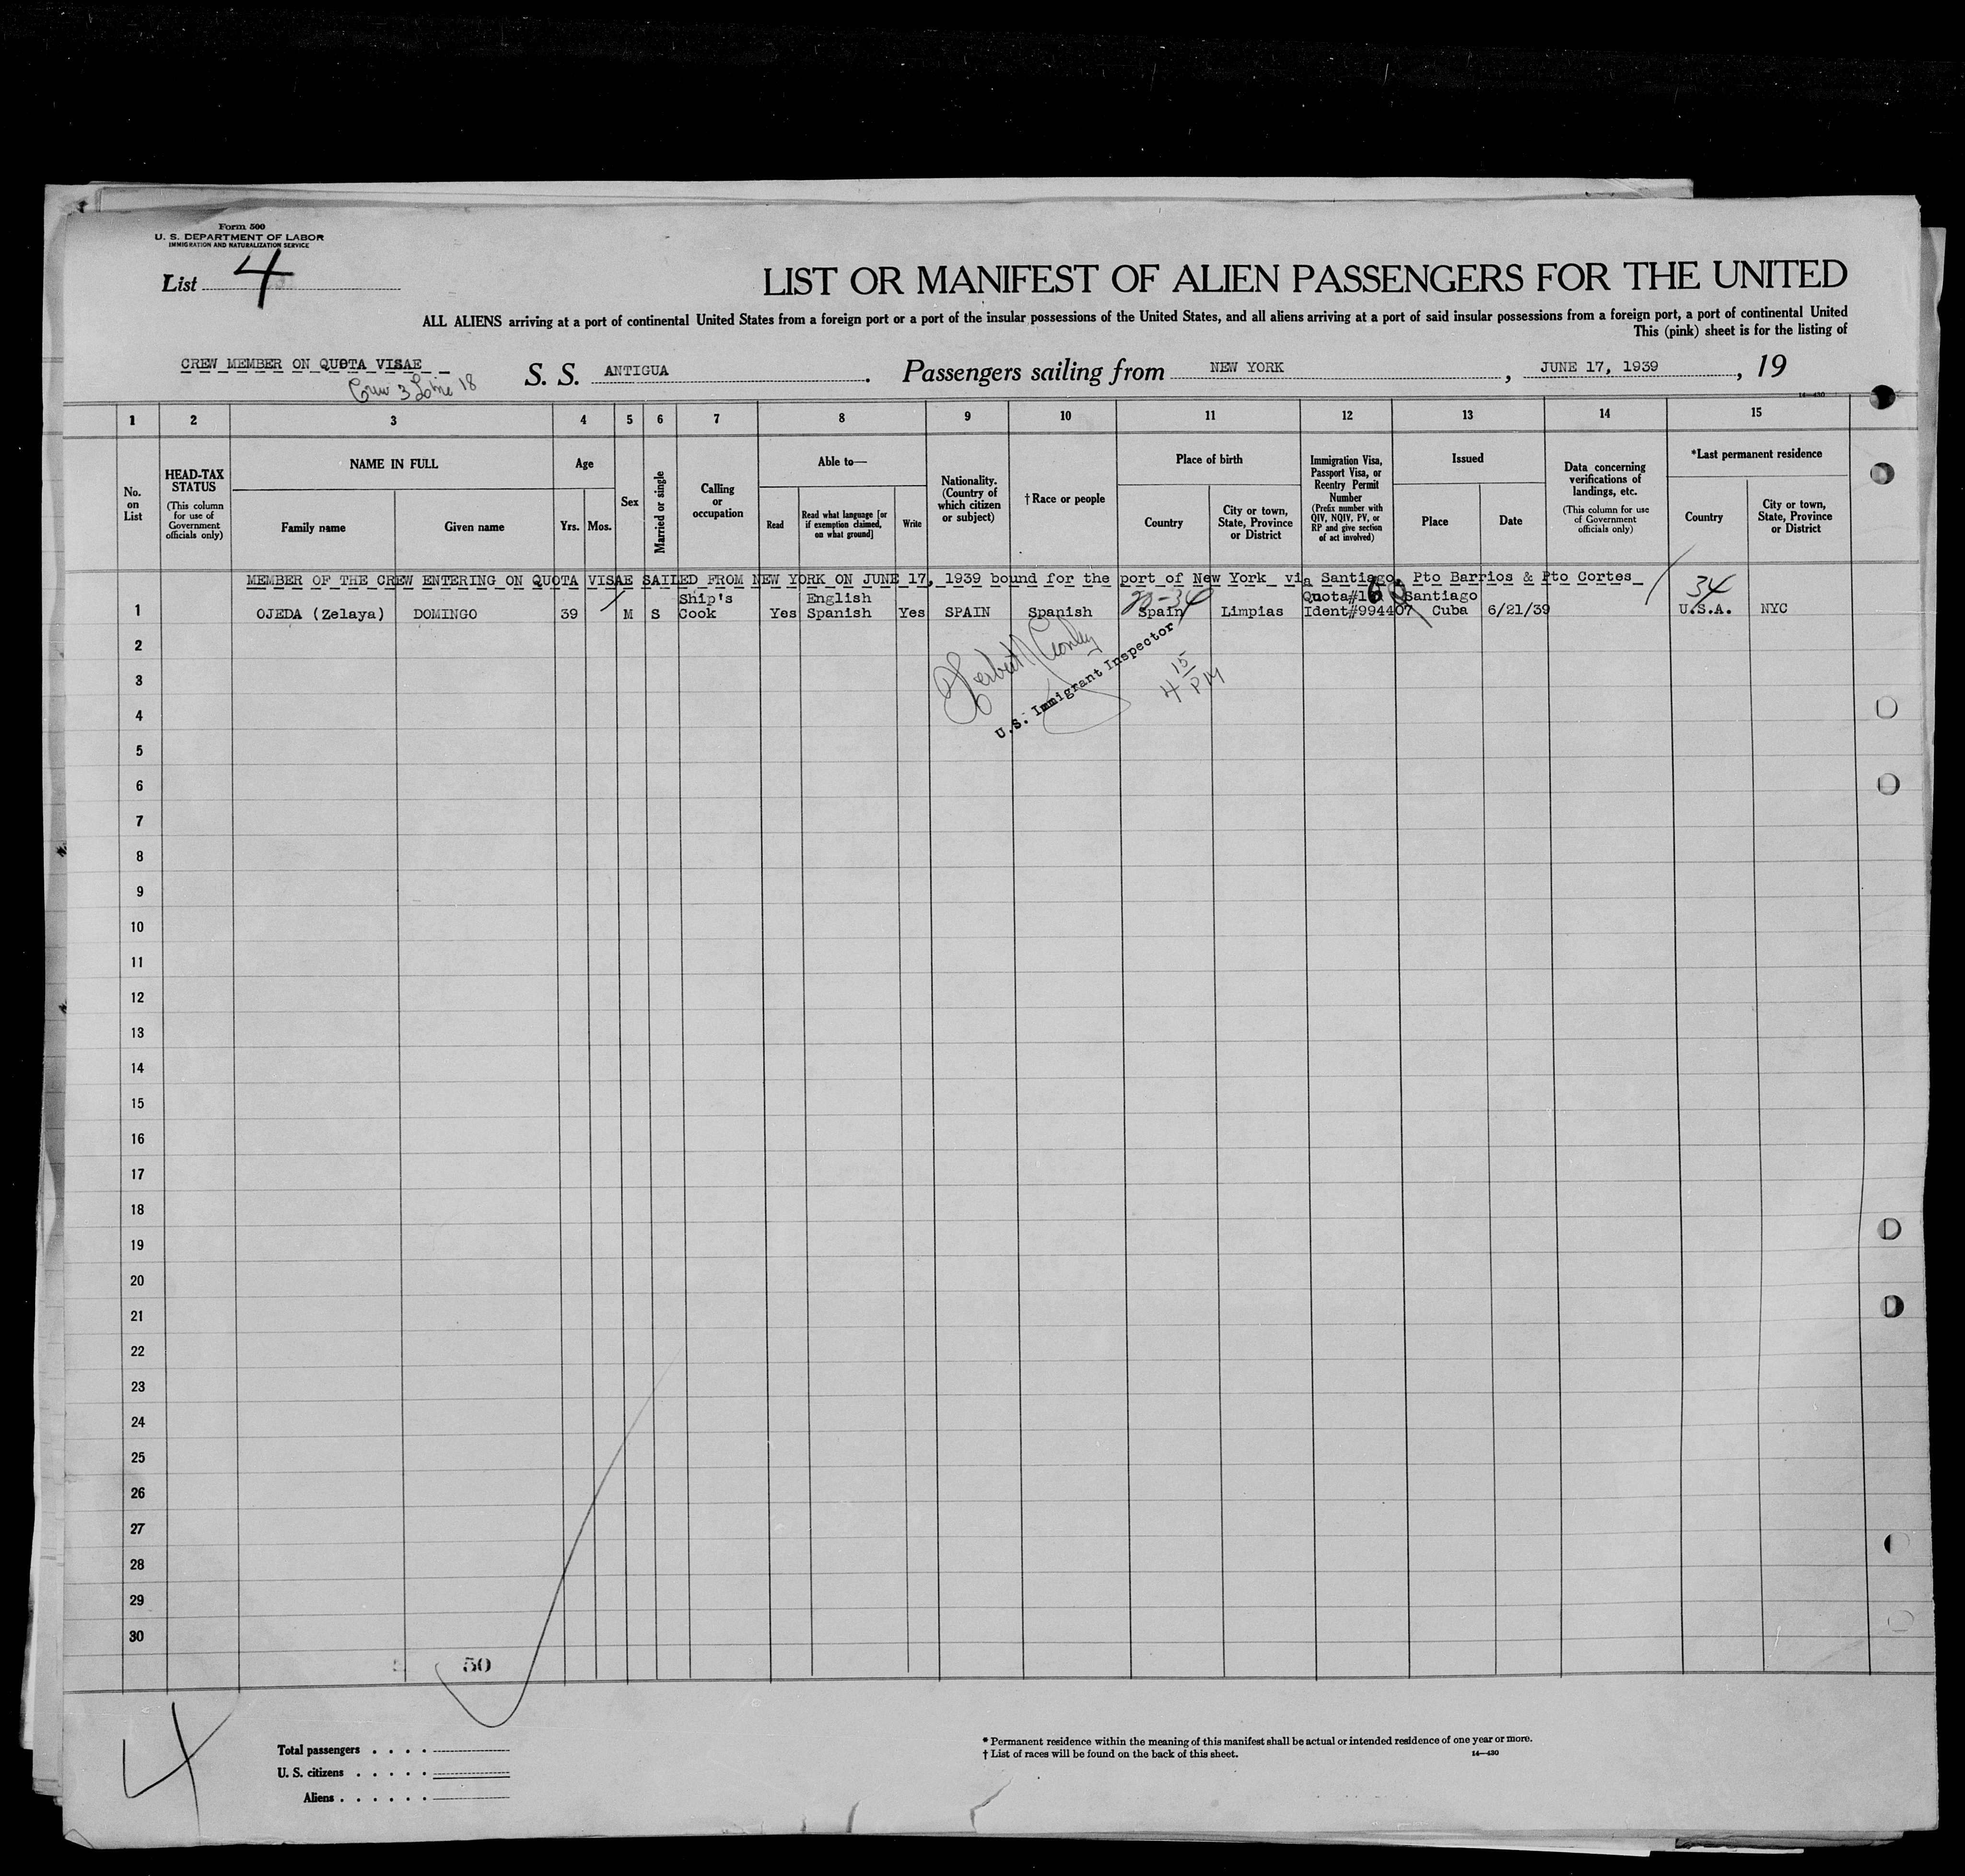 Form 500
U. S. DEPARTMENT OF LABOR
IMMIGRATION AND NATURALIZATION SERVICE
List 4
LIST OR MANIFEST OF ALIEN PASSENGERS FOR THE UNITED
ALL ALIENS arriving at a port of continental United States from a foreign port or a port of the insular possessions of the United States, and all aliens arriving at a port of said insular possessions from a foreign port, a port of continental United
This (pink) sheet is for the listing of
CREW MEMBER ON QUOTA VISAE
Crew 3 Line 18
S. S. ANTIGUA. Passengers sailing from NEW YORK, JUNE 17, 1939, 19
14—430
1 2 3 4 5 6 7 8 9 10 11 12 13 14 15
No. on List
HEAD-TAX STATUS (This column for use of Government officials only)
NAME IN FULL
Family name Given name
Age
Yrs. Mos.
Sex
Married or single
Calling or occupation
Able to—
Read Read what language [or if exemption claimed, on what ground] Write
Nationality. (Country of which citizen or subject)
† Race or people
Place of birth
Country City or town, State, Province or District
Immigration Visa, Passport Visa, or Reentry Permit Number (Prefix number with QIV, NQIV, PV, or RP and give section of act involved)
Issued
Place Date
Data concerning verifications of landings, etc. (This column for use of Government officials only)
*Last permanent residence
Country City or town, State, Province or District
MEMBER OF THE CREW ENTERING ON QUOTA VISAE SAILED FROM NEW YORK ON JUNE 17, 1939 bound for the port of New York via Santiago, Pto Barrios & Pto Cortes
Ship's English Quota# Santiago 34
1 OJEDA (Zelaya) DOMINGO 39 M S Cook Yes Spanish Yes SPAIN Spanish Spain Limpias Ident#994407 Cuba 6/21/39 U.S.A. NYC
2
3
4
U.S. Immigrant Inspector
4 15 PM
5
6
7
8
9
10
11
12
13
14
15
16
17
18
19
20
21
22
23
24
25
26
27
28
29
30
50
4
Total passengers . . . .
U. S. citizens . . . . .
Aliens . . . . . .
* Permanent residence within the meaning of this manifest shall be actual or intended residence of one year or more.
† List of races will be found on the back of this sheet.
14—430